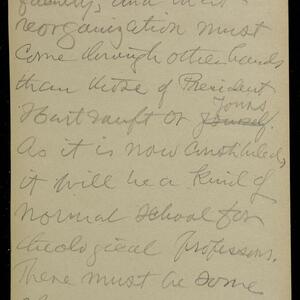 faculty, and that
reorganization must
come through other hands
than those of President
Hartranft or yours
yourself.
As it is now constituted,
it will be a kind of
normal school for
theological professors.
There must be some